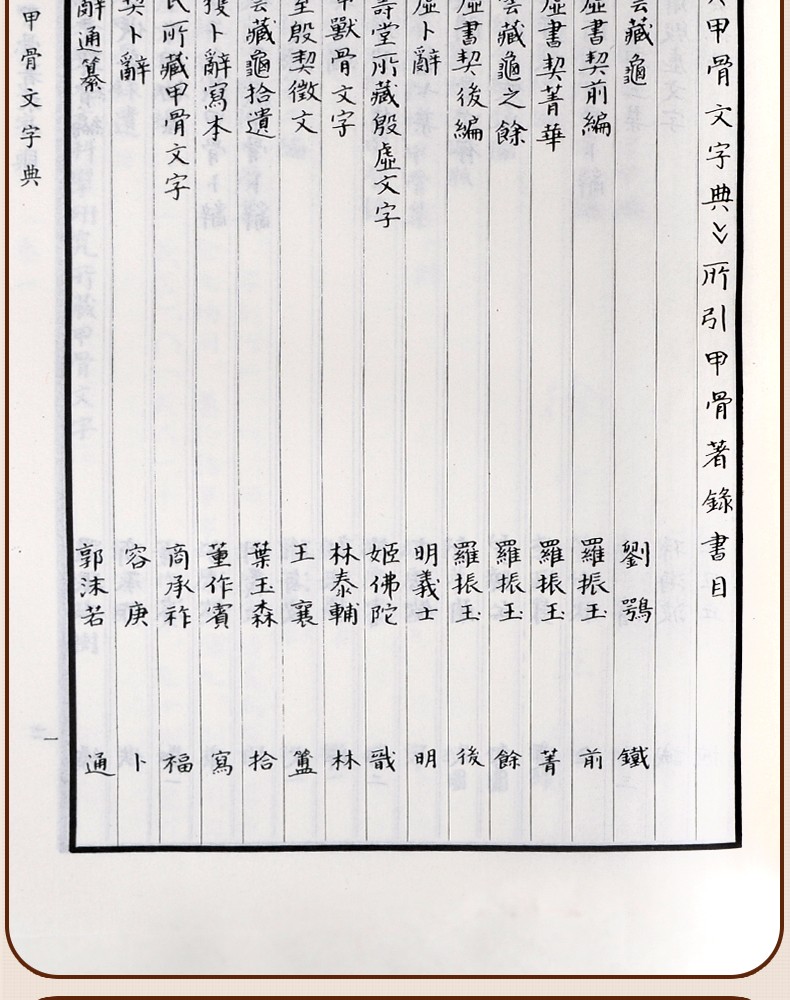 甲骨文字典》所引甲骨著錄書目
雲藏龜 劉鶚 鐵
虛書契前編 羅振玉 前
虛書契菁華 羅振玉 菁
雲藏龜之餘 羅振玉 餘
虛書契後編 羅振玉 後
虛卜辭 明義士 明
壽堂所藏殷虛文字 姬佛陀 戩
甲獸骨文字 林泰輔 林
室殷契徵文 王襄 簠
雲藏龜拾遺 葉玉森 拾
獲卜辭寫本 董作賓 寫
氏所藏甲骨文字 商承祚 福
契卜辭 容庚 卜
辭通纂 郭沫若 通
甲骨文字典
一